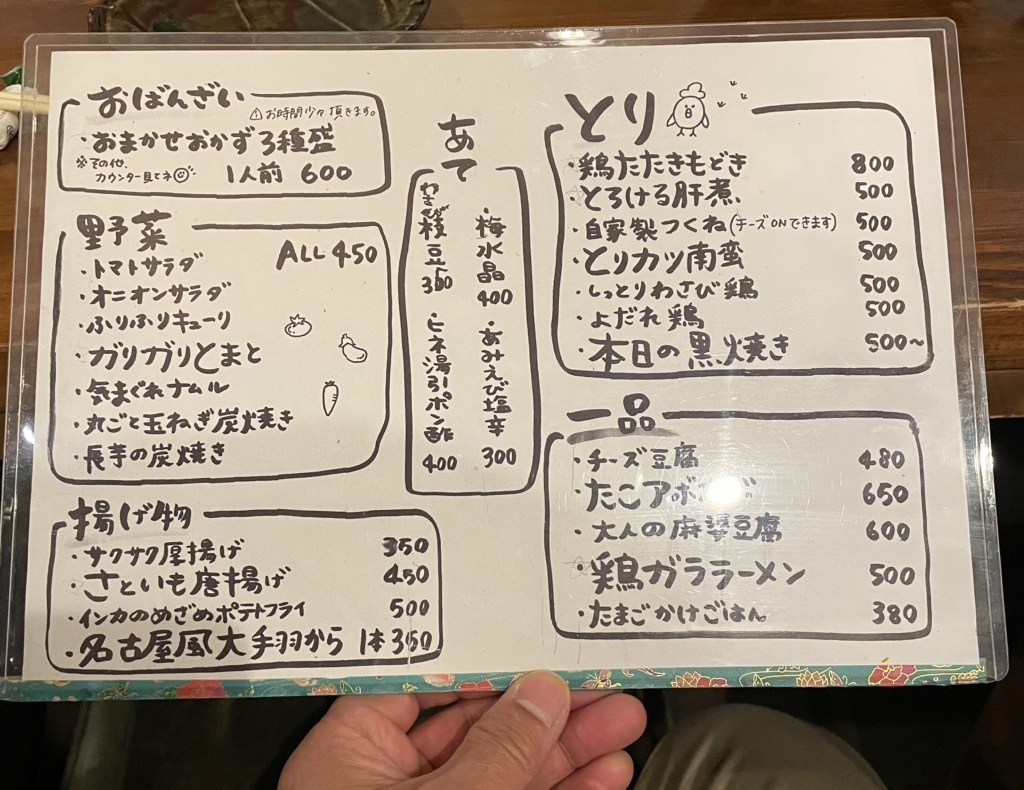 おばんざい
⚠お時間少々頂きます。
・おまかせおかず3種盛
※その他、
カウンター見てネ
1人前 600
野菜
ALL 450
・トマトサラダ
・オニオンサラダ
・ふりふりキューリ
・ガリガリとまと
・気まぐれナムル
・丸ごと玉ねぎ炭焼き
・長芋の炭焼き
揚げ物
・サクサク厚揚げ 350
・さといも唐揚げ 450
・インカのめざめポテトフライ 500
・名古屋風大手羽から 1本350
あて
・梅水晶 400
・あみえび塩辛 300
わさび枝豆 350
・ヒネ湯引ポン酢 400
とり
・鶏たたきもどき 800
・とろける肝煮 500
・自家製つくね(チーズONできます) 500
・とりカツ南蛮 500
・しっとりわさび鶏 500
・よだれ鶏 500
・本日の黒焼き 500~
一品
・チーズ豆腐 480
・たこアボ 650
・大人の麻婆豆腐 600
・鶏ガララーメン 500
・たまごかけごはん 380